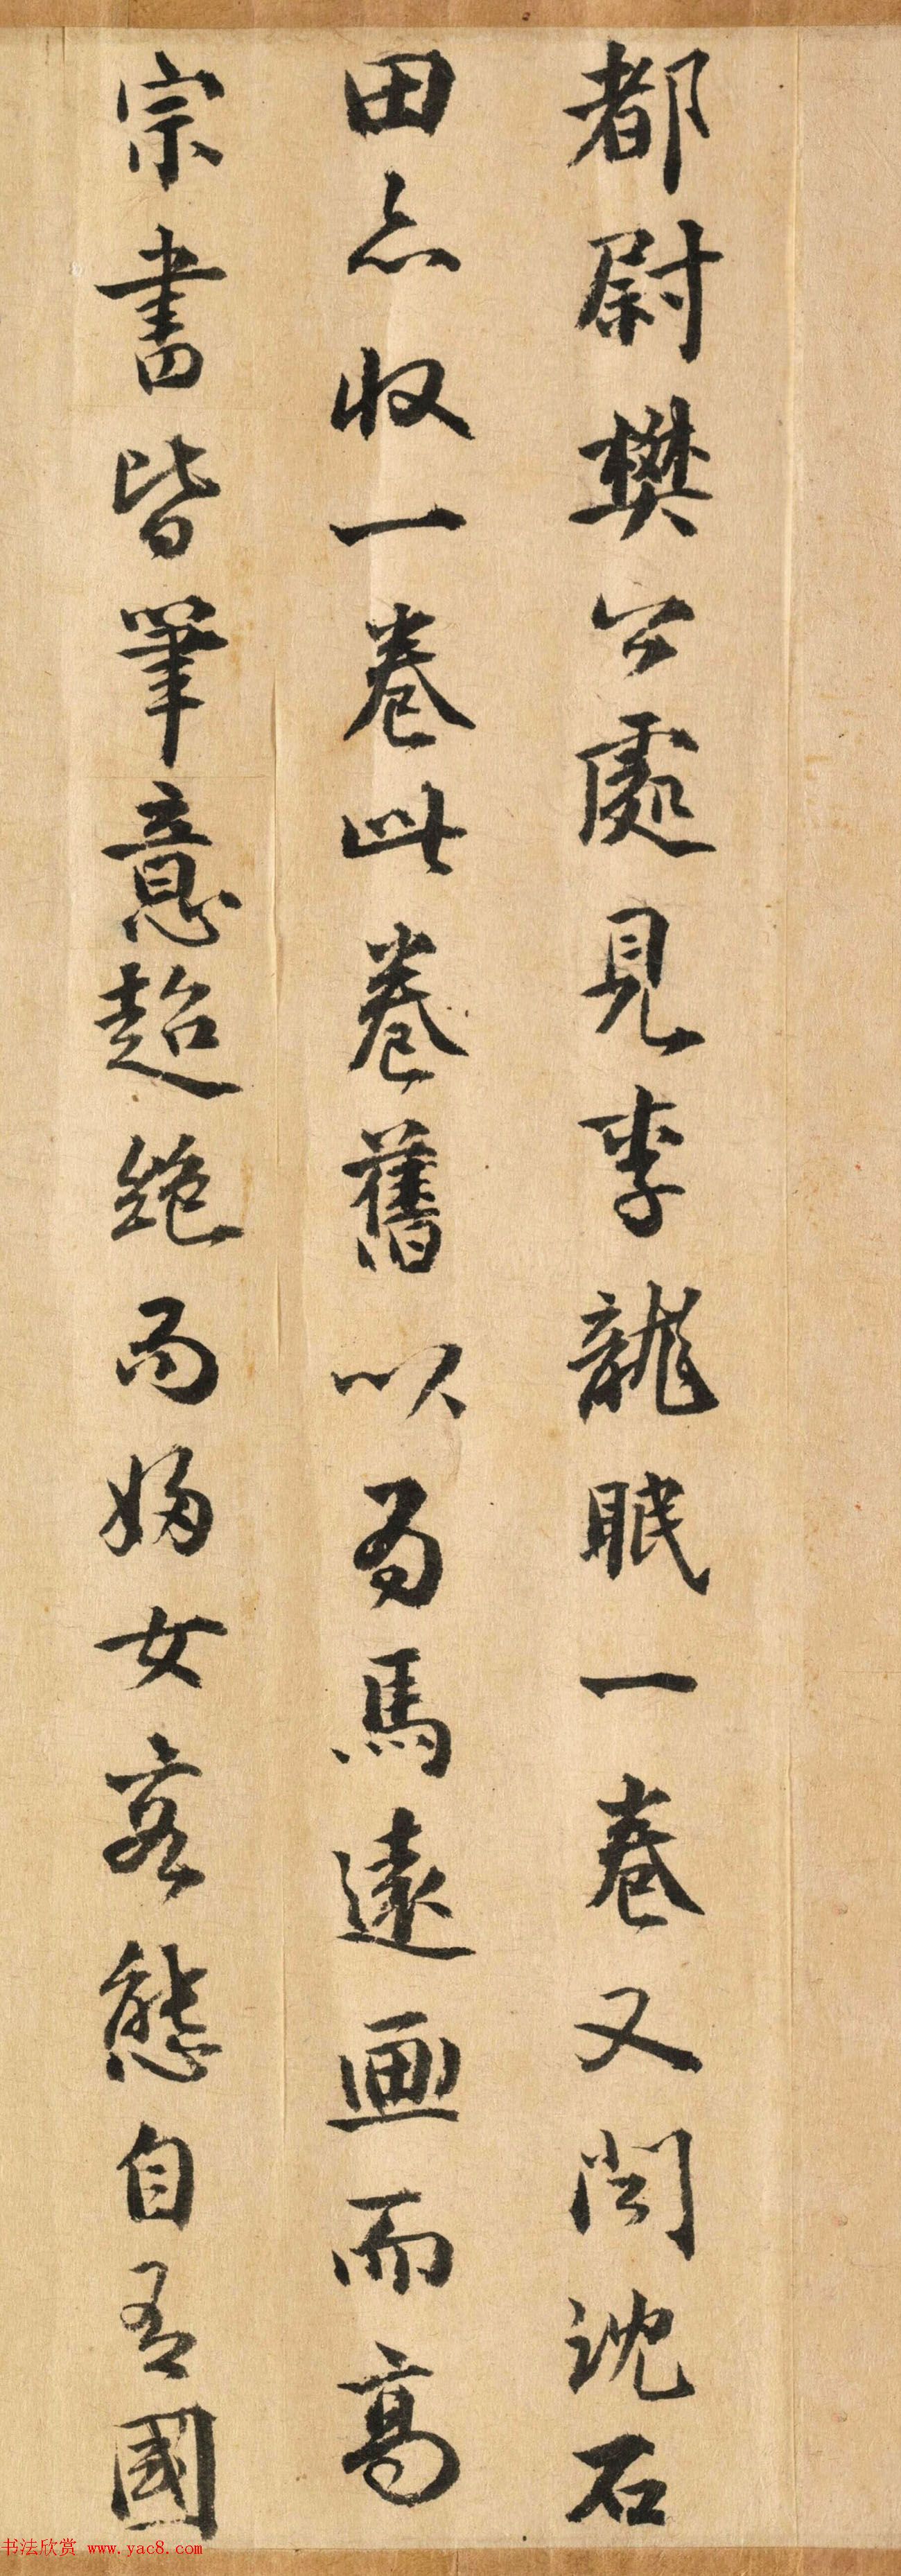 都尉樊公處見李龍眠一卷又聞沈石
田亦收一卷此卷舊以爲馬遠畫而高
宗書皆筆意超絕而婦女容態自有國
书法欣赏 www.yac8.com